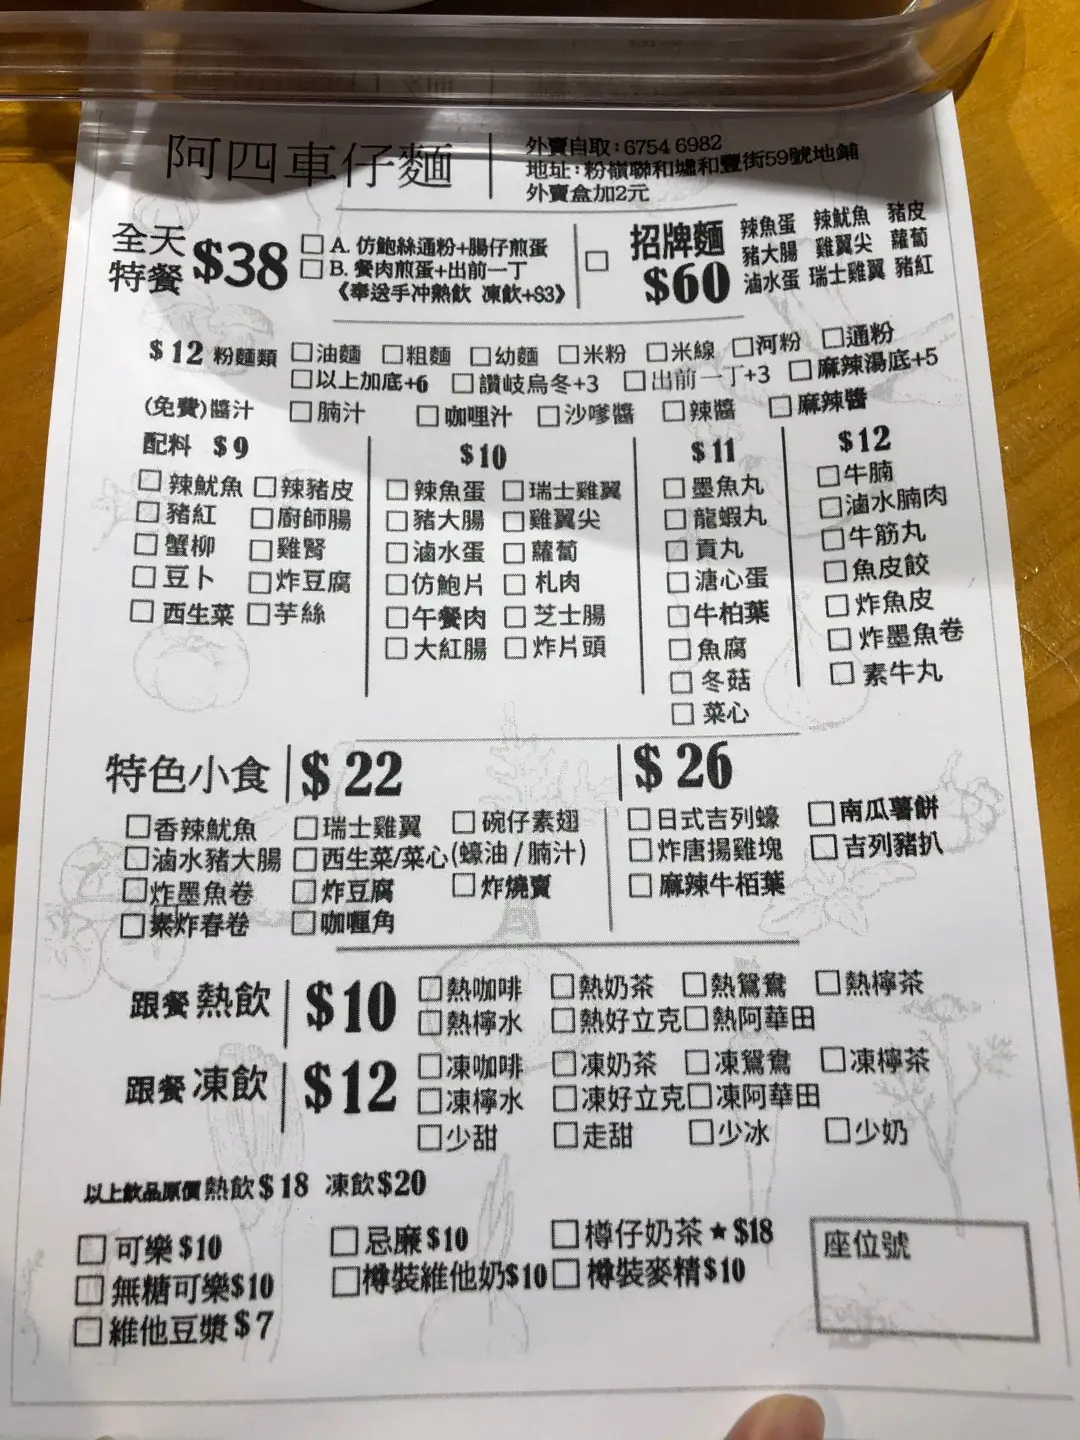 阿四車仔麵
外賣自取:6754 6982
地址:粉嶺聯和墟和豐街59號地鋪
外賣盒加2元
全天特餐 $38
□ A. 仿鮑絲通粉+腸仔煎蛋
□ B. 餐肉煎蛋+出前一丁
《奉送手冲熱飲 凍飲+$3》
□ 招牌麵 $60
辣魚蛋 辣魷魚 豬皮
豬大腸 雞翼尖 蘿蔔
滷水蛋 瑞士雞翼 豬紅
$12 粉麵類 □油麵 □粗麵 □幼麵 □米粉 □米線 □河粉 □通粉
□以上加底+6 □讚岐烏冬+3 □出前一丁+3 □麻辣湯底+5
(免費)醬汁 □腩汁 □咖哩汁 □沙嗲醬 □辣醬 □麻辣醬
配料 $9
□辣魷魚 □辣豬皮
□豬紅 □廚師腸
□蟹柳 □雞腎
□豆卜 □炸豆腐
□西生菜 □芋絲
$10
□辣魚蛋 □瑞士雞翼
□豬大腸 □雞翼尖
□滷水蛋 □蘿蔔
□仿鮑片 □札肉
□午餐肉 □芝士腸
□大紅腸 □炸片頭
$11
□墨魚丸
□龍蝦丸
□貢丸
□溏心蛋
□牛柏葉
□魚腐
□冬菇
□菜心
$12
□牛腩
□滷水腩肉
□牛筋丸
□魚皮餃
□炸魚皮
□炸墨魚卷
□素牛丸
特色小食 $22
□香辣魷魚 □瑞士雞翼 □碗仔素翅
□滷水豬大腸 □西生菜/菜心(蠔油/腩汁)
□炸墨魚卷 □炸豆腐 □炸燒賣
□素炸春卷 □咖喱角
$26
□日式吉列蠔 □南瓜薯餅
□炸唐揚雞塊 □吉列豬扒
□麻辣牛栢葉
跟餐熱飲 $10
□熱咖啡 □熱奶茶 □熱鴛鴦 □熱檸茶
□熱檸水 □熱好立克 □熱阿華田
跟餐凍飲 $12
□凍咖啡 □凍奶茶 □凍鴛鴦 □凍檸茶
□凍檸水 □凍好立克 □凍阿華田
□少甜 □走甜 □少冰 □少奶
以上飲品原價熱飲$18 凍飲$20
□可樂$10 □忌廉$10 □樽仔奶茶★$18
□無糖可樂$10 □樽裝維他奶$10 □樽裝麥精$10
□維他豆漿$7
座位號